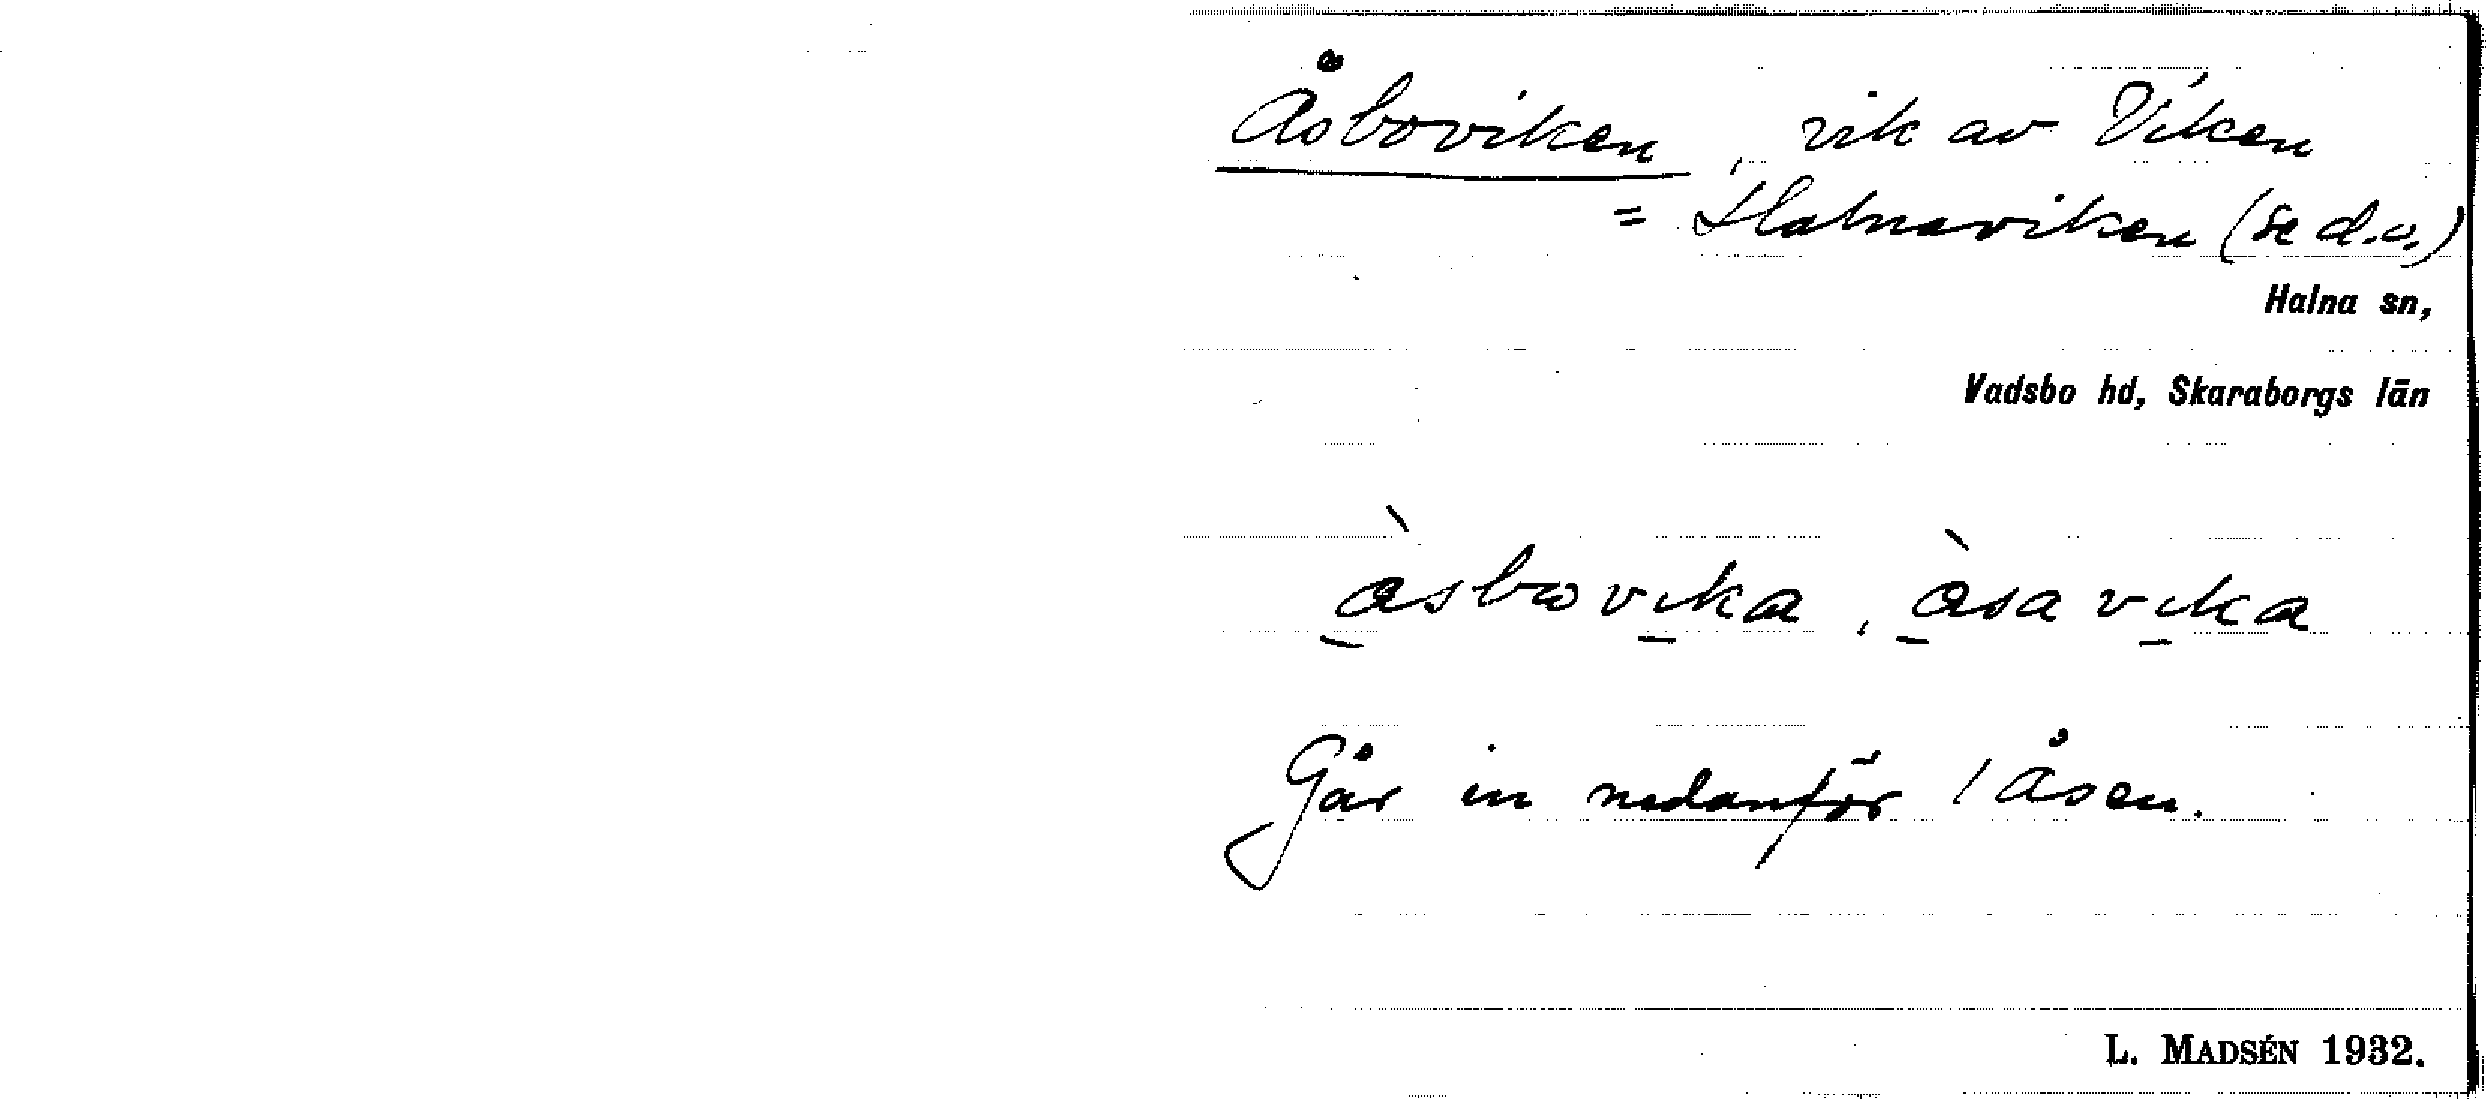 Åsboviken, vik av Viken
= Halnaviken (se d.o.)
Halna sn,
Vadsbo hd, Skaraborgs län
àsbovika, àsavika
Går in nedanför /Åsen.
L. MADSÉN 1932.